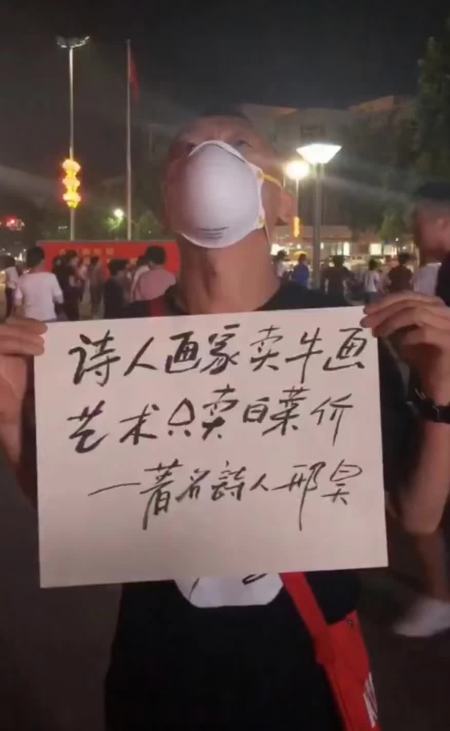 诗人画家卖牛画
艺术只卖白菜价
一著名詩人邢昊